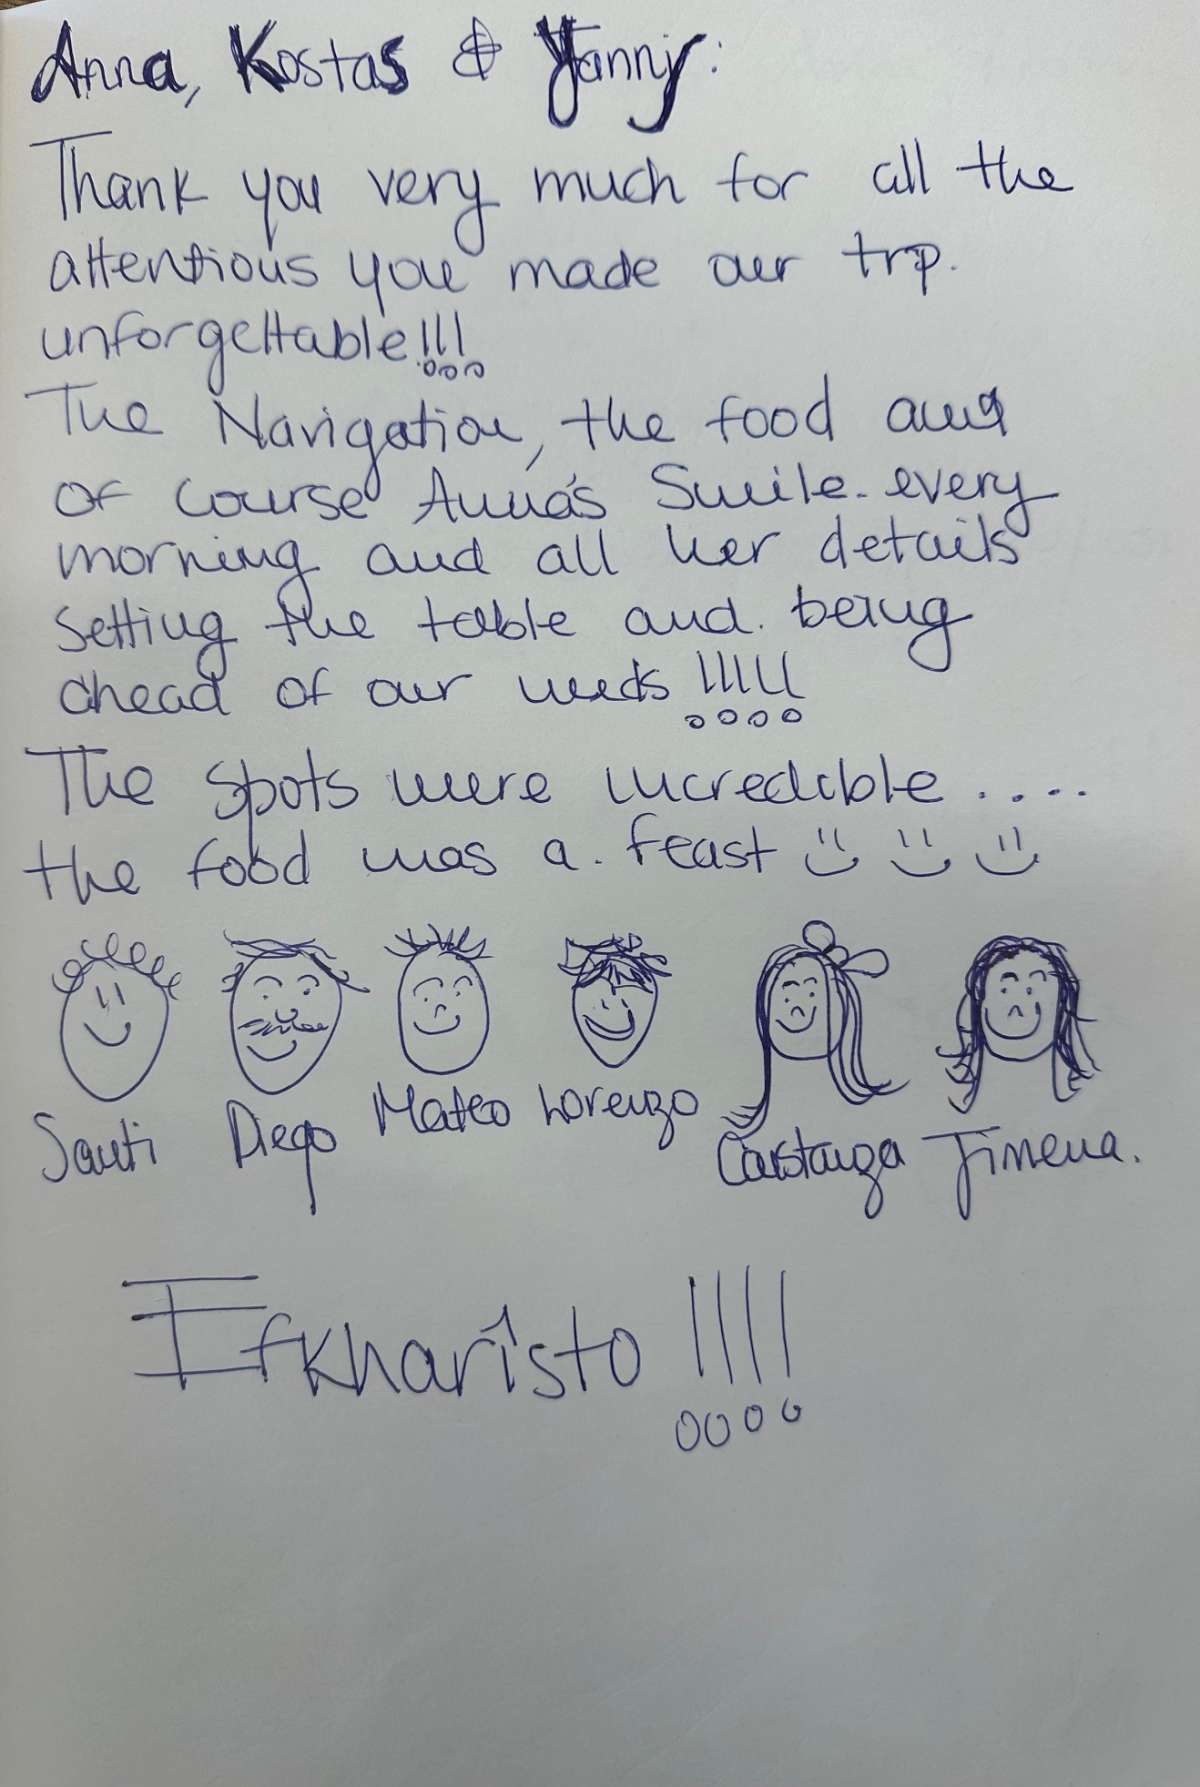 Anna, Kostas & Yanny:
Thank you very much for all the
attentious you made our trp.
unforgettable!!!
The Navigation, the food and
of course Anna's Smile. every
morning and all her details
setting the table and. being
ahead of our needs !!!!!
The spots were incredible ....
the food was a. feast
Santi Diego Mateo Lorenzo Constanza Jimena.
Efkharîsto !!!!